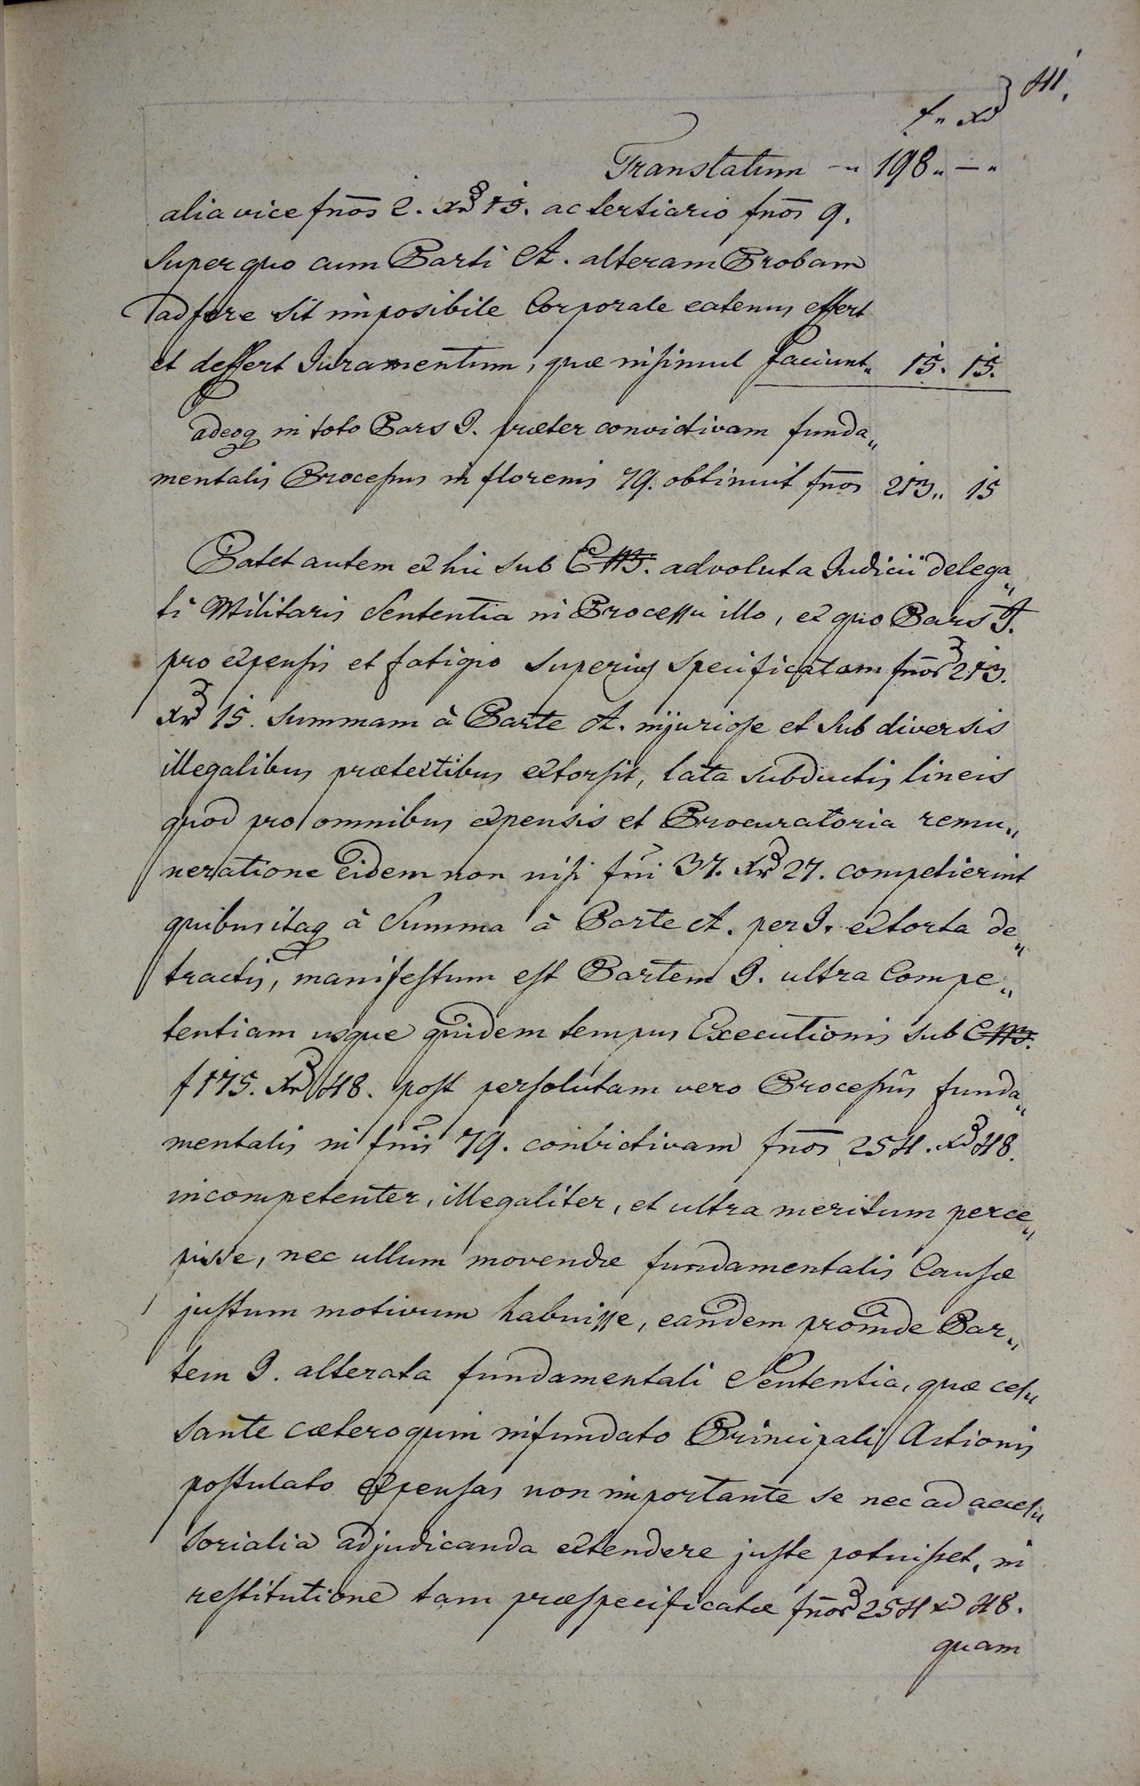 41.
f. xr
Translatum -„ 198„ —„
alia vice fnos 2. xr 15. ac tertiario fnos 9.
Super quo cum Parti A. alteram Probam
adferre sit imposibile Corporale eatenus offert
et deffert Juramentum, quæ insimul faciunt„ 15. 15.
adeoq in toto Pars I. præter convictivam funda„
mentalis Processus in florenis 79. obtinuit fnos 213„ 15
Patet autem ex hic sub advoluta Judicii delega„
ti Militaris Sententia in Processu illo, ex quo Pars I.
pro expensis et fatigio superius specificatam fnor 213.
xr 15. Summam à Parte A. injuriose et sub diversis
illegalibus prætextibus extorsit, lata subductis lineis
quod pro omnibus expensis et Procuratoria remu„
neratione Eidem non nisi fni 37. xr 27. competierint
quibus itaq à Summa à Parte A. per I. extorta de„
tractis, manifestum est Partem I. ultra Compe„
tentiam usque quidem tempus Executionis sub
f 175. xr 48. post persolutam vero Processus funda„
mentalis in fnis 79. convictivam fnos 254. xr 48.
incompetenter, illegaliter, et ultra meritum perce„
pisse, nec ullum movendæ fundamentalis Causæ
justum motivum habuisse, eandem proinde Par„
tem I. alterata fundamentali Sententia, quæ ces„
sante cæteroquin infundato Principali Actionis
postulato expensas non importante se nec ad acces„
sorialia adjudicanda extendere juste potuisset, in
restitutione tam præspecificatæ fnor 254 xr 48.
quam